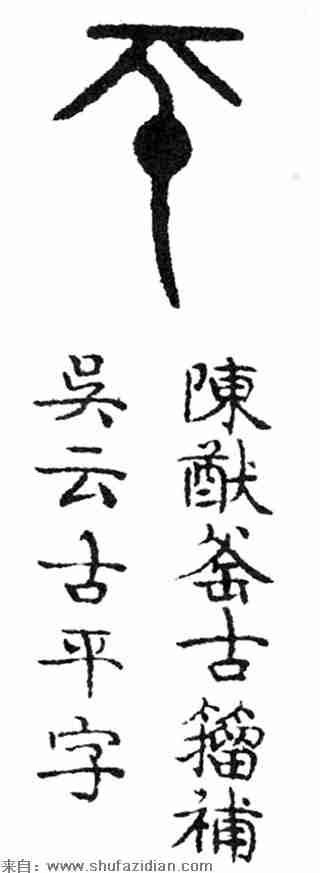 陳猷釜古籀補
吳云古平字
来自：www.shufazidian.com